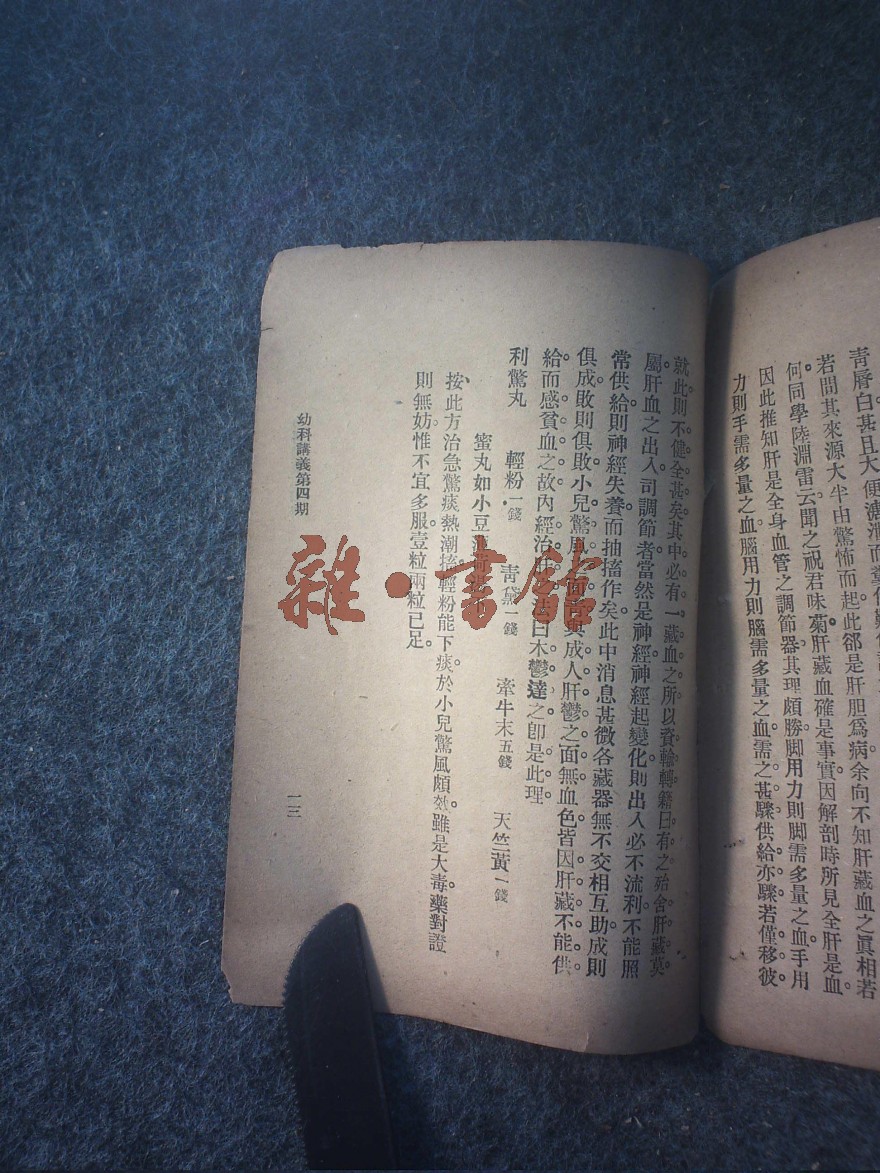 青唇白甚且大便溏泄而
若問其來源大半由驚怖而起此郤是肝胆爲病余向不知肝藏血之眞相若
何同學陸淵雷云聞之祝君味菊肝藏血確是事實因解剖時所見全肝是血。
因此推知肝是全身血管之調節器其理頗勝脚用力則脚需多量之血手用
力則手需多量之血腦用力則腦需多量之血需之甚驟供給亦驟若僅移彼
就此則不健全甚矣其中必有一藏血之所以資輸轉籍曰有之殆舍肝藏莫
屬肝血之出入司調節者當然是神經神經起變化則出入必不流利不能照
常供給則神經失養而抽搐作矣此中消息甚微各藏器無不交相互助成則
俱成敗則俱敗小兒驚風面與成人肝鬱之面無血色皆因肝藏不能供
給而感貧血之故內經治曰木鬱達之卽是此理
利驚丸 輕粉一錢 靑黛一錢 牽牛末五錢 天竺黃一錢
蜜丸如小豆
按此方治急驚痰熱潮搐輕粉能下痰於小兒驚風頗效雖是大毒藥對證
則無妨惟不宜多服壹粒兩粒已足。
幼科講義第四期
一三
雜·書館